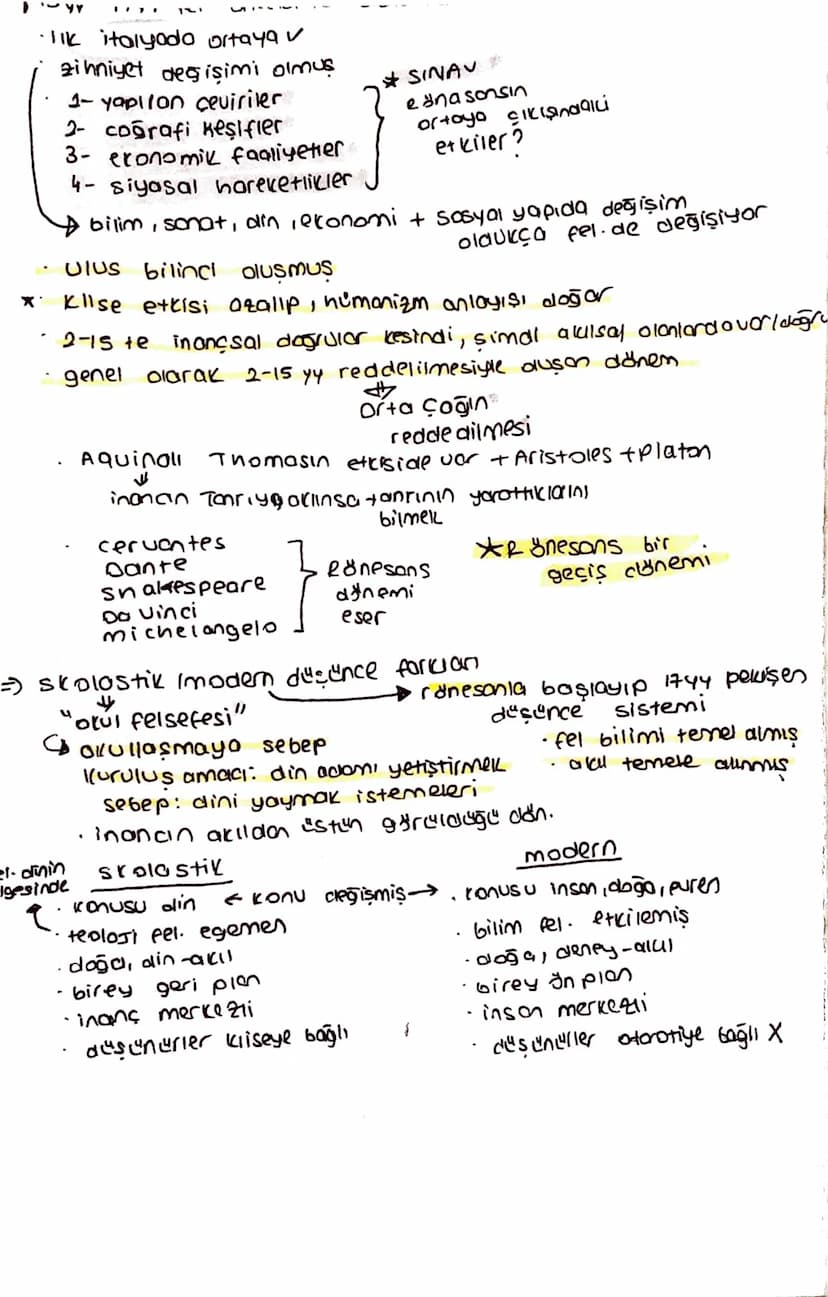 · ilk italyada ortaya ✓
zihniyet değişimi olmuş
· 1- yapılan çeviriler
2- coğrafi keşifler
3- ekonomik faaliyetler
4- siyasal hareketlikler
* SINAV
rönasansın
ortaya çıkışındaki
etkiler?
→ bilim, sanat, din, ekonomi + sosyal yapıda değişim
oldukça fel. de değişiyor
· ulus bilinci oluşmuş
* · klise etkisi azalıp, hümanizm anlayışı doğar
· 2-15 te inançsal doğrular kesindi, şimdi akılsal olanlarda var/doğru
· genel olarak 2-15 yy reddelilmesiyle oluşan dönem
orta çağın
reddedilmesi
· Aquinalı Thomasın etkiside var + Aristoles + platon
inanan Tanrıya aklınsa tanrının yarattıklarını
bilmek
· cervantes
Dante
shakespeare
Da vinci
michelangelo
Rönesans
dönemi
eser
★ Rönesans bir
geçiş dönemi
⇒ skolastik / modern düşünce farkları
→ rönesanla başlayıp 17yy pekişen
düşünce sistemi
· fel bilimi temel almış
· akıl temele alınmış
"okul felsefesi"
↪ okullaşmaya sebep
kuruluş amacı: din adamı yetiştirmek
sebep: dini yaymak istemeleri
· inancın akıldan üstün görüldüğü dön.
fel. dinin
gölgesinde
skolastik
modern
· konusu din ← konu değişmiş → . konusu insan, doğa, evren
· teoloji fel. egemen
· bilim fel. etkilemiş
· doğa, din-akıl
· doğa, deney-akıl
· birey geri plan
· birey ön plan
· inanç merkezli
· insan merkezli
· düşünürler kliseye bağlı
· düşünüller otoratiye bağlı X